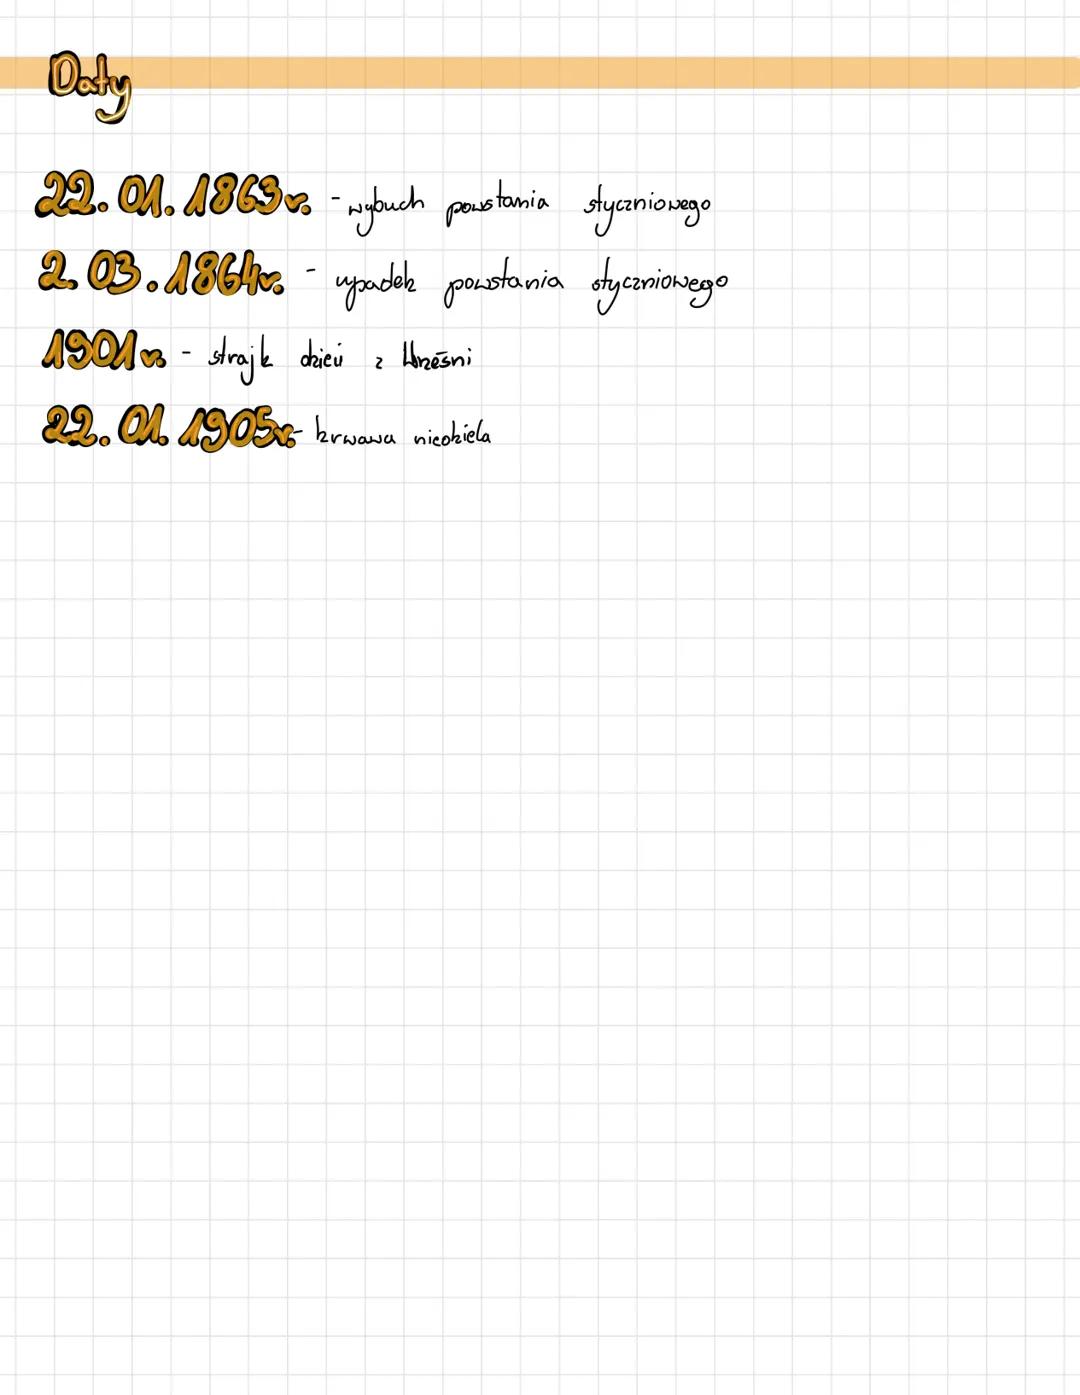 Daty
22. 01. 1863r. - wybuch powstania styczniowego
2. 03. 1864r. - upadek powstania styczniowego
1901r. - strajk dzieci z Wrześni
22. 01. 1905r. - krwawa niedziela